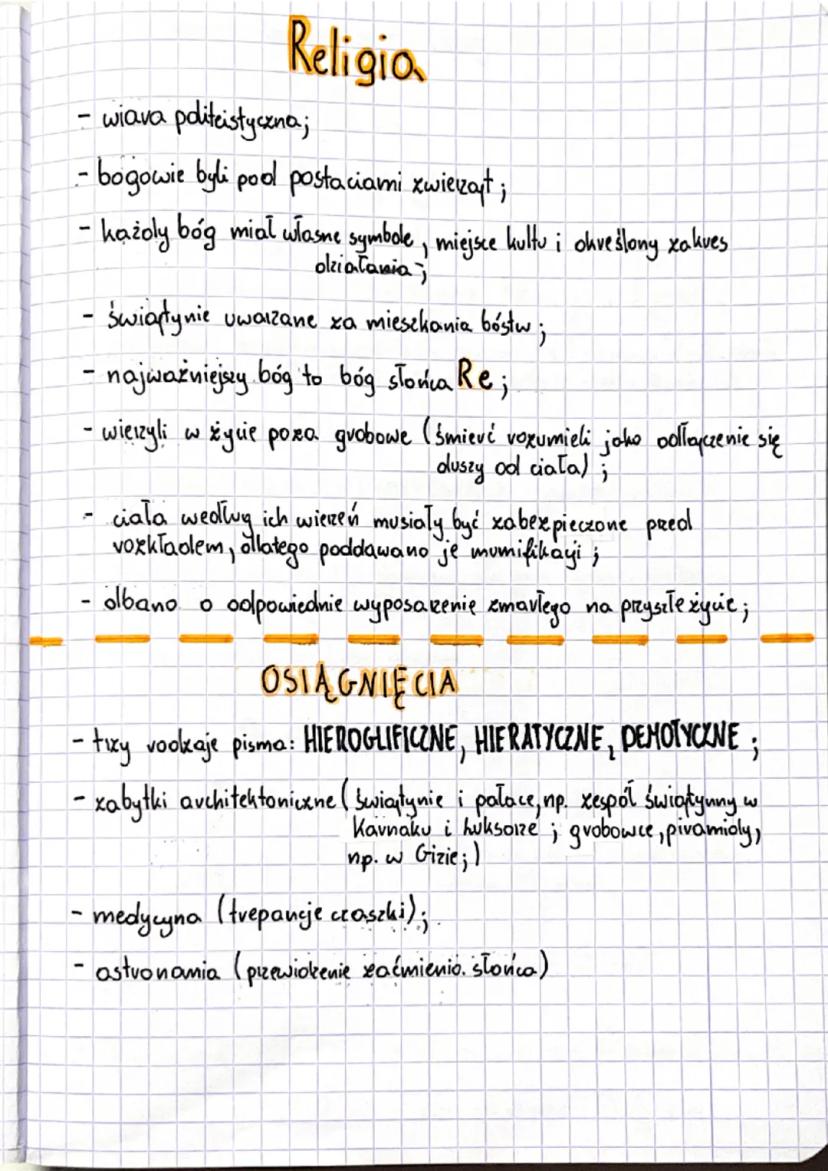 Religia
- wiara politeistyczna;
- bogowie byli pod postaciami zwierząt;
- każdy bóg miał własne symbole, miejsce kultu i określony zakres
działania;
- świątynie uważane za mieszkania bóstw;
- najważniejszy bóg to bóg słońca Re;
- wierzyli w życie poza grobowe (śmierć rozumieli jako odłączenie się
duszy od ciała);
- ciała według ich wierzeń musiały być zabezpieczone przed
rozkładem, dlatego poddawano je mumifikacji;
- dbano o odpowiednie wyposarzenie zmarłego na przyszłe życie;
OSIĄGNIĘCIA
- trzy rodzaje pisma: HIEROGLIFICZNE, HIERATYCZNE, DEMOTYCZNE;
- zabytki architektoniczne (świątynie i pałace, np. zespół świątynny w
Karnaku i Luksorze; grobowce, piramidy,
np. w Gizie;)
- medycyna (trepancje czaszki);
- astronamia (przewidzenie zaćmienia słońca)